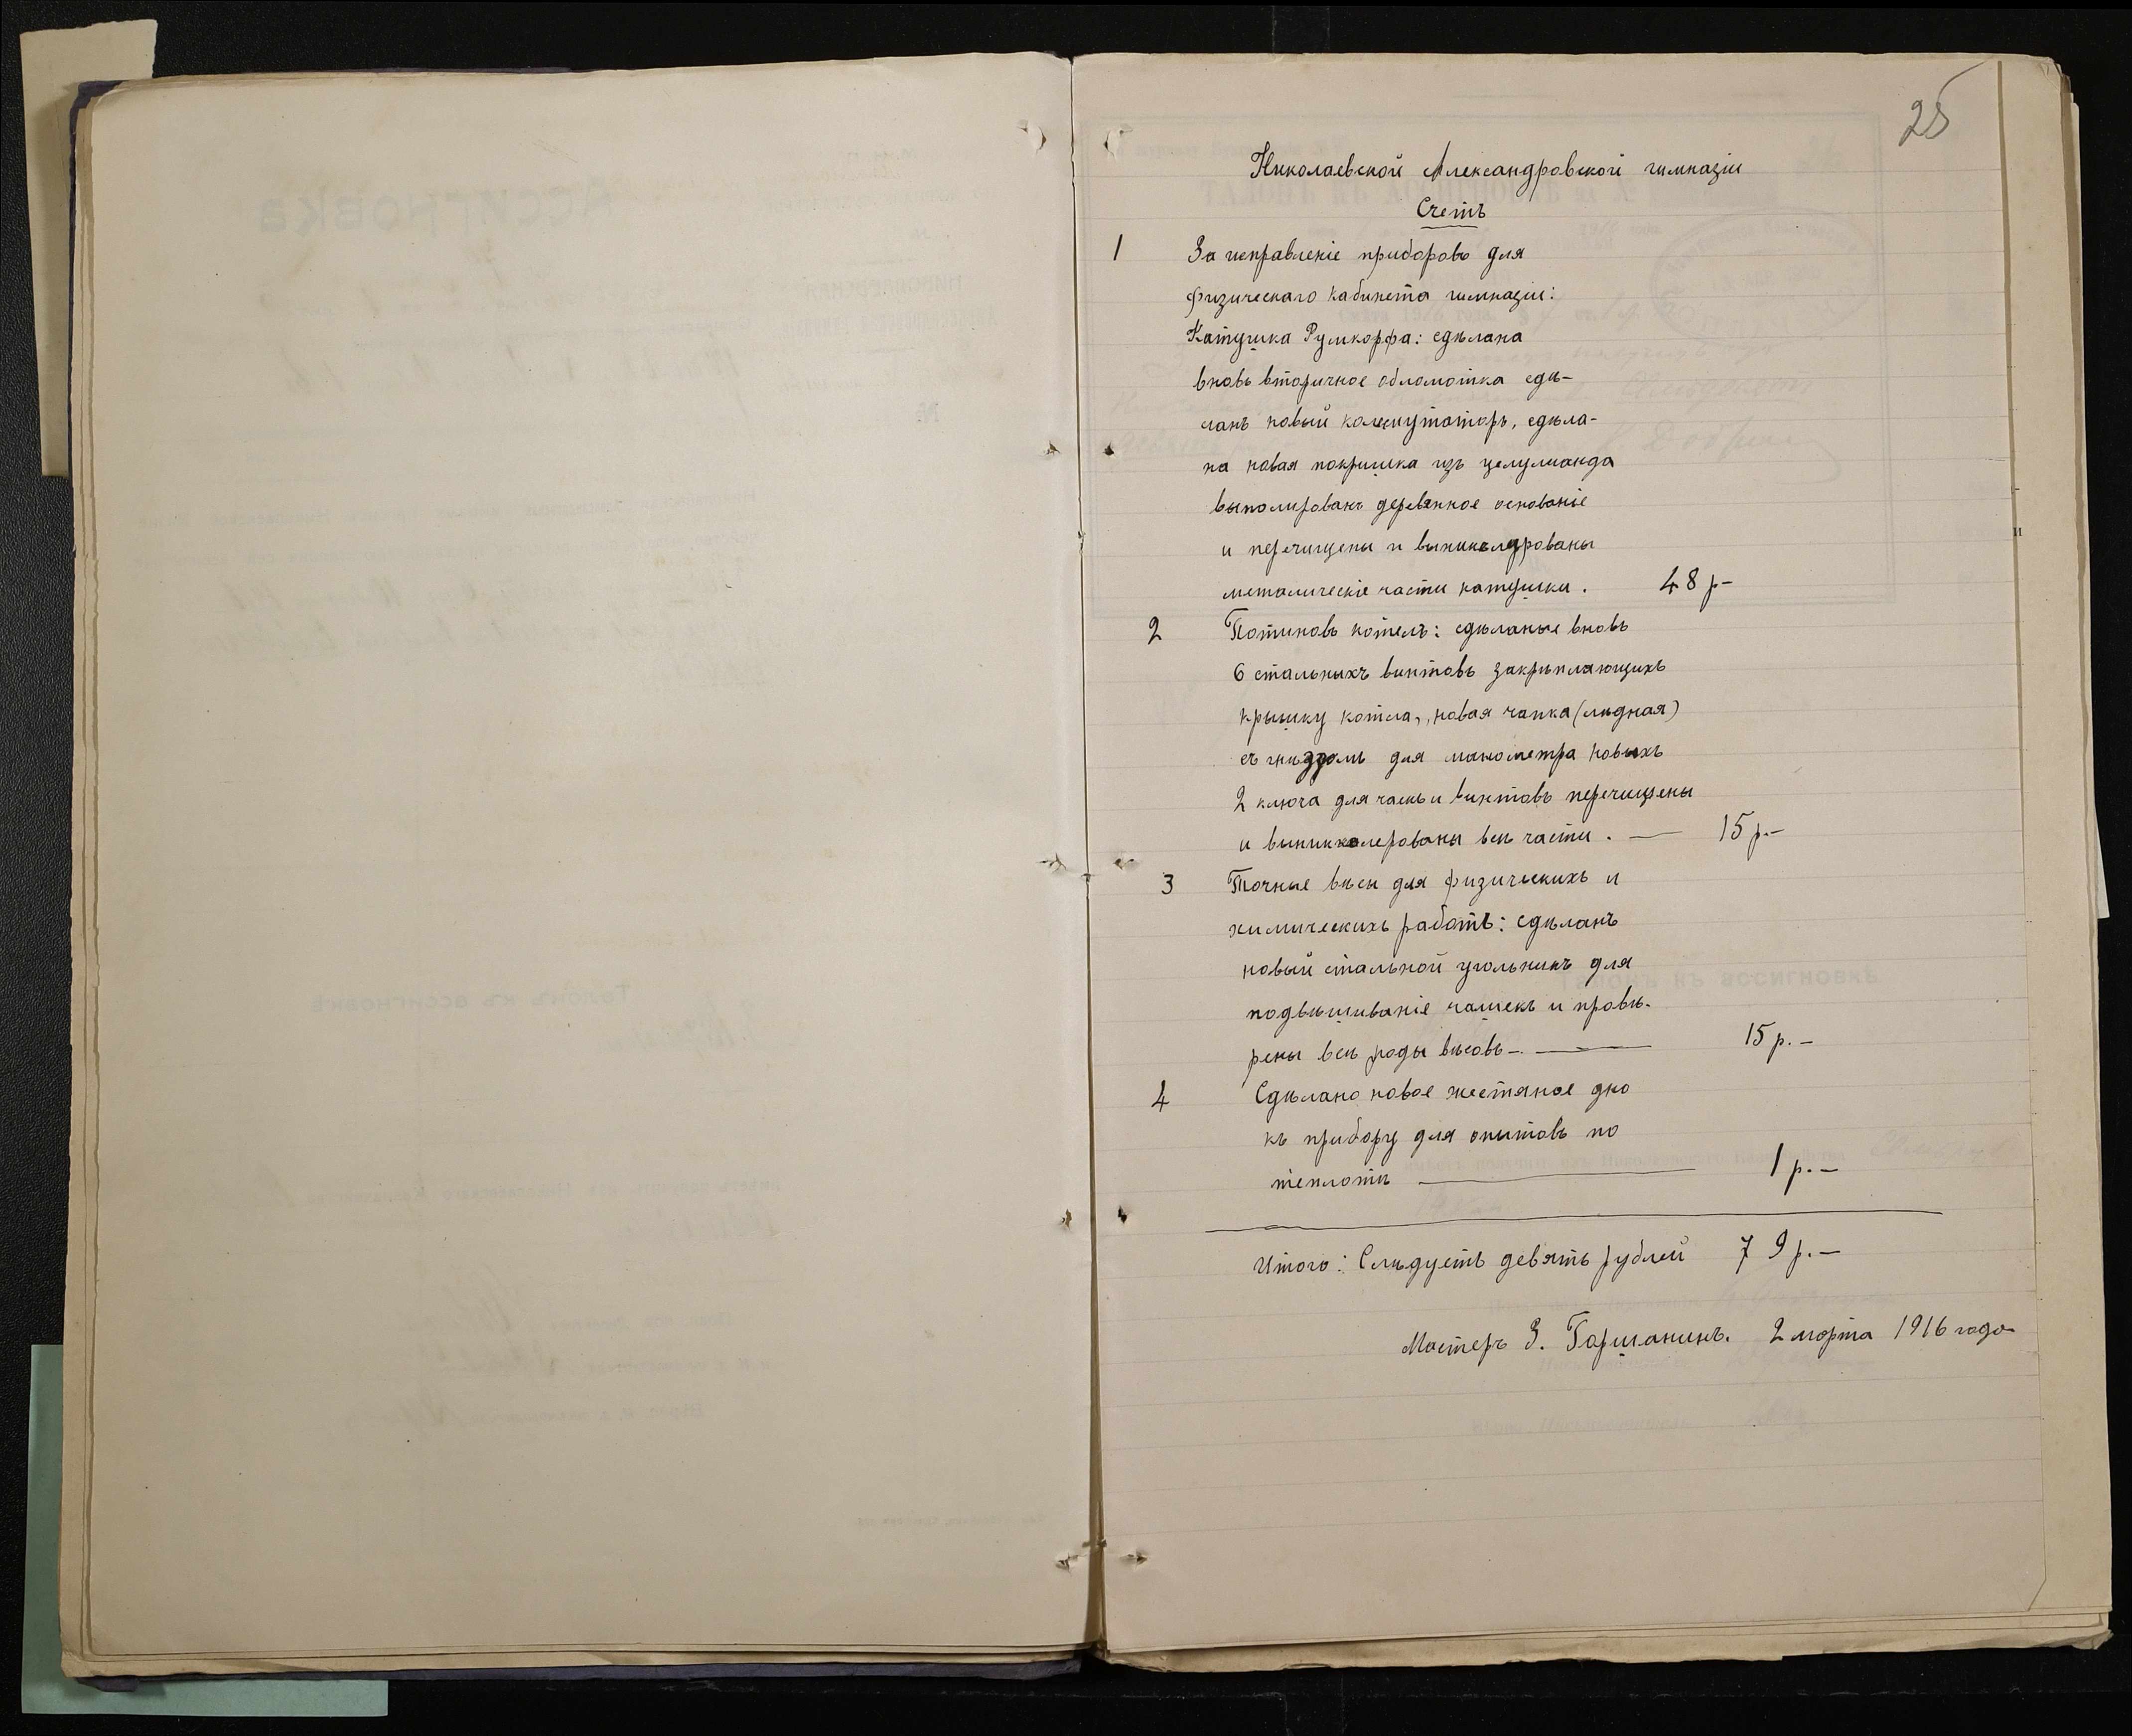 25
Николаевской Александровской гимназіи
Счетъ
1 За исправленіе приборовъ для
физическаго кабинета гимназіи:
Катушка Румкорфа: сдѣлана
вновь вторичное обломотка сдѣ-
ланъ новый коммутаторъ, сдѣла-
на новая покришка изъ целулоида
выполированъ деревянное основаніе
и перечищены и выникелированы
металическіе части катушки. 48 р-
2 Потиновъ котелъ: сдѣланые вновь
6 стальныхъ винтовъ закрѣпляющихъ
крышку котла, новая чапка (мѣдная)
съ гнѣздомъ для манометра новыхъ
2 ключа для и винтовъ перечищены
и выникелерованы всѣ части. — 15 р.-
3 Точные вѣсы для физическихъ и
химическихъ работъ: сдѣланъ
новый стальной угольникъ для
подвѣшиваніе чашекъ и провѣ-
рены всѣ роды вѣсовъ -. — 15 р. -
4 Сдѣлано новое жестяное дно
къ прибору для опытовъ по
теплотѣ — 1 р. -
Итого: Слѣдуетъ девять рублей 79 р. -
Мастеръ З. Гаршанинъ. 2 марта 1916 года